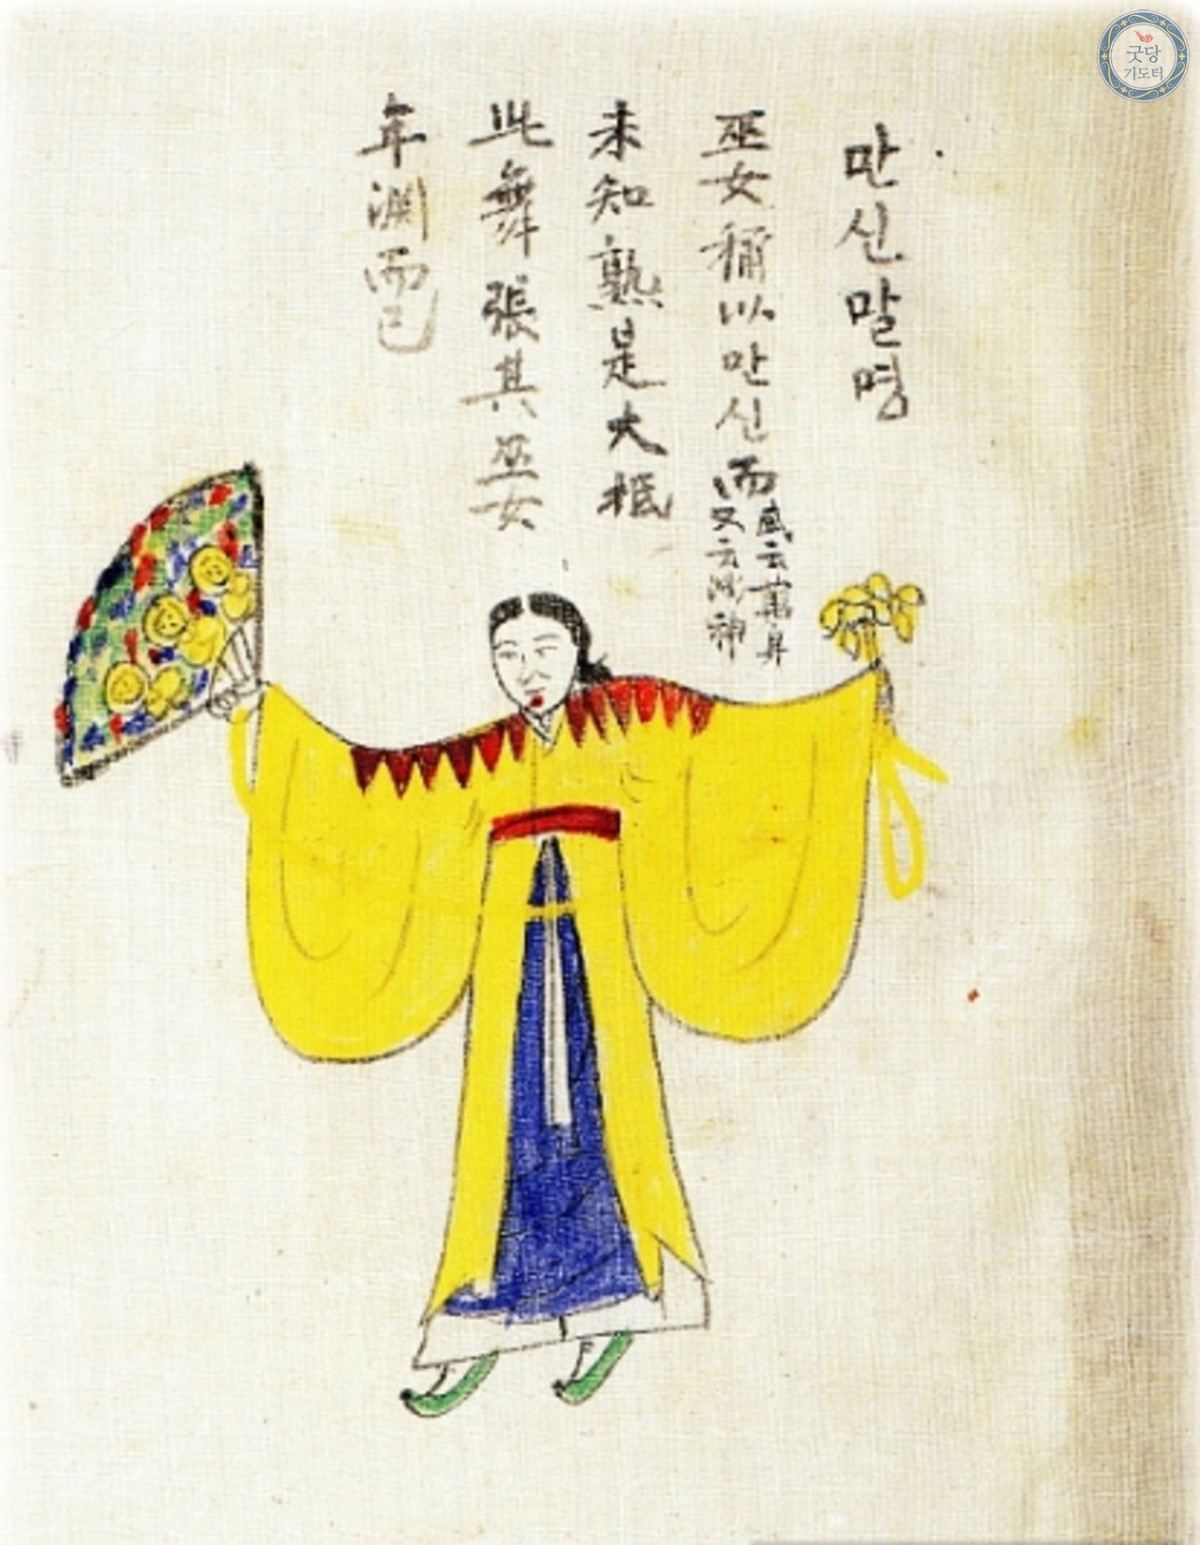 만신말명
巫女稱以만신而
或云萬身
又云 神
未知熟是大抵
此舞張其巫女
年淵而已
굿당
기도터